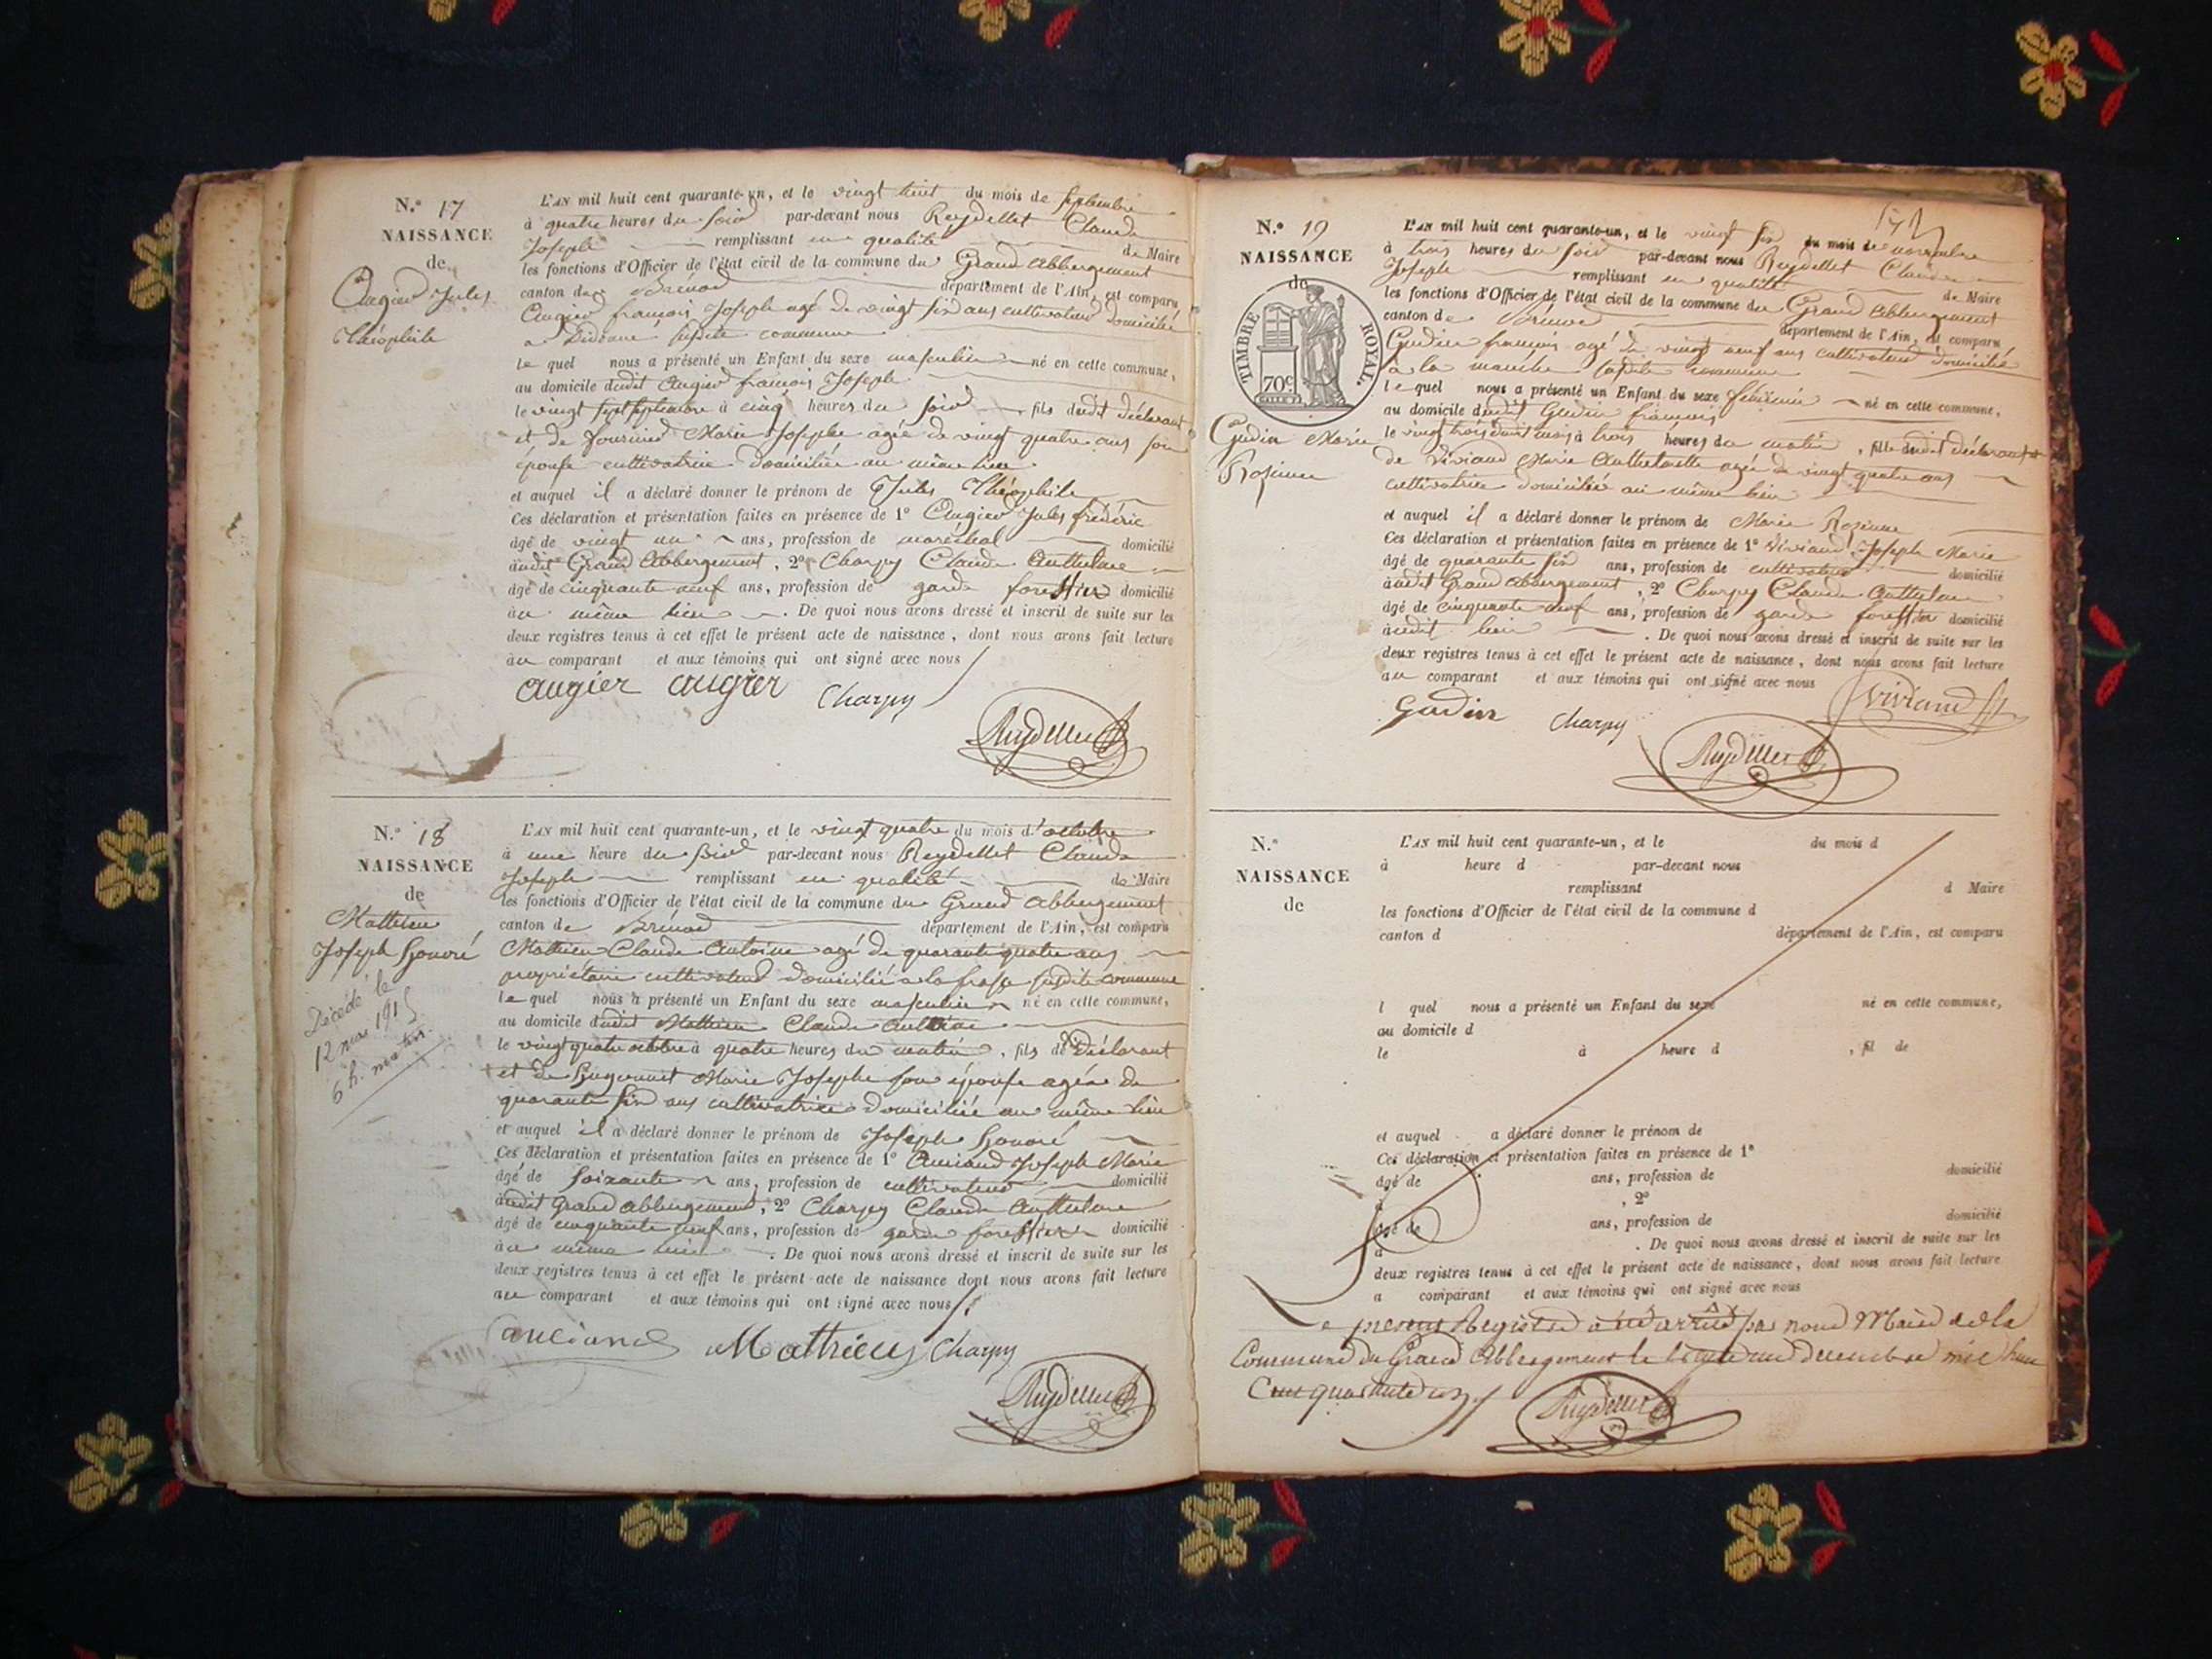 N.° 17
NAISSANCE
de
Augier Jules
Théophile
L'AN mil huit cent quarante-un, et le vingt huit du mois de septembre
à quatre heures du soir par-devant nous Reydellet Claude
Joseph remplissant en qualité de Maire
les fonctions d'Officier de l'état civil de la commune du Grand abbergement
canton de Brénod département de l'Ain, est comparu
Augier françois Joseph agé de vingt six ans cultivateur domicilié
a susdite commune
le quel nous a présenté un Enfant du sexe masculin né en cette commune,
au domicile dudit Augier françois Joseph
le vingt sept septembre à cinq heures du soir fils dudit déclarant
et de Marie Josephe agée de vingt quatre ans son
épouse cultivatrice domiciliée au même lieu
et auquel il a déclaré donner le prénom de Jules Théophile
Ces déclaration et présentation faites en présence de 1° Augier Jules frédéric
âgé de vingt un ans, profession de maréchal domicilié
audit Grand Abbergement, 2° Charpy Claude Anthelme
âgé de cinquante neuf ans, profession de garde forestier domicilié
au même lieu. De quoi nous avons dressé et inscrit de suite sur les
deux registres tenus à cet effet le présent acte de naissance, dont nous avons fait lecture
au comparant et aux témoins qui ont signé avec nous
augier augier Charpy
Reydellet
N.° 18
NAISSANCE
de
Mathieu
Joseph honoré
Décédé le
12 mar 1915
6 h. matin
L'AN mil huit cent quarante-un, et le vingt quatre du mois d'octobre
à une heure du soir par-devant nous Reydellet Claude
Joseph remplissant en qualité de Maire
les fonctions d'Officier de l'état civil de la commune du Grand abbergement
canton de Brénod département de l'Ain, est comparu
Mathieu Claude Antoine agé de quarante quatre ans
propriétaire cultivateur domicilié a la susdite commune
le quel nous a présenté un Enfant du sexe masculin né en cette commune,
au domicile dudit Mathieu Claude Antoine
le vingt quatre octobre à quatre heures du matin, fils de déclarant
et de Hugonnet Marie Josephe son épouse agée de
quarante six ans cultivatrice domiciliée au même lieu
et auquel il a déclaré donner le prénom de Joseph honoré
Ces déclaration et présentation faites en présence de 1° Anciand Joseph Marie
âgé de soixante ans, profession de cultivateur domicilié
audit Grand abbergement, 2° Charpy Claude Anthelme
âgé de cinquante neuf ans, profession de garde forestier domicilié
au même lieu. De quoi nous avons dressé et inscrit de suite sur les
deux registres tenus à cet effet le présent acte de naissance dont nous avons fait lecture
au comparant et aux témoins qui ont signé avec nous
anciand Mathieu Charpy
Reydellet
N.° 19
NAISSANCE
de
TIMBRE ROYAL.
70c
Gudin Marie
Rosine
L'AN mil huit cent quarante-un, et le vingt six du mois de novembre
à trois heures du soir par-devant nous Reydellet Claude
Joseph remplissant en qualité de Maire
les fonctions d'Officier de l'état civil de la commune du Grand abbergement
canton de Brénod département de l'Ain, est comparu
Gudin françois agé de vingt neuf ans cultivateur domicilié
à la manche susdite commune
le quel nous a présenté un Enfant du sexe féminin né en cette commune,
au domicile dudit Gudin françois
le vingt trois dudit mois à trois heures du matin, fille dudit déclarant et
de Viviand Marie Anthelmette agée de vingt quatre ans
cultivatrice domiciliée au même lieu
et auquel il a déclaré donner le prénom de Marie Rosine
Ces déclaration et présentation faites en présence de 1° Viviand Joseph Marie
âgé de quarante six ans, profession de cultivateur domicilié
audit Grand abbergement, 2° Charpy Claude Anthelme
âgé de cinquante neuf ans, profession de garde forestier domicilié
audit lieu. De quoi nous avons dressé et inscrit de suite sur les
deux registres tenus à cet effet le présent acte de naissance, dont nous avons fait lecture
au comparant et aux témoins qui ont signé avec nous
Gudin Charpy Viviand
Reydellet
N.°
NAISSANCE
de
L'AN mil huit cent quarante-un, et le du mois d
à heure d par-devant nous
remplissant d Maire
les fonctions d'Officier de l'état civil de la commune d
canton d département de l'Ain, est comparu
l quel nous a présenté un Enfant du sexe né en cette commune,
au domicile d
le à heure d , fil de
et auquel a déclaré donner le prénom de
Ces déclaration et présentation faites en présence de 1°
âgé de ans, profession de domicilié
à , 2°
âgé de ans, profession de domicilié
à . De quoi nous avons dressé et inscrit de suite sur les
deux registres tenus à cet effet le présent acte de naissance, dont nous avons fait lecture
a comparant et aux témoins qui ont signé avec nous
Le présent Registre a été arrêté par nous Maire de la
Commune du Grand Abbergement le trente un decembre mil huit
Cent quarante un
Reydellet